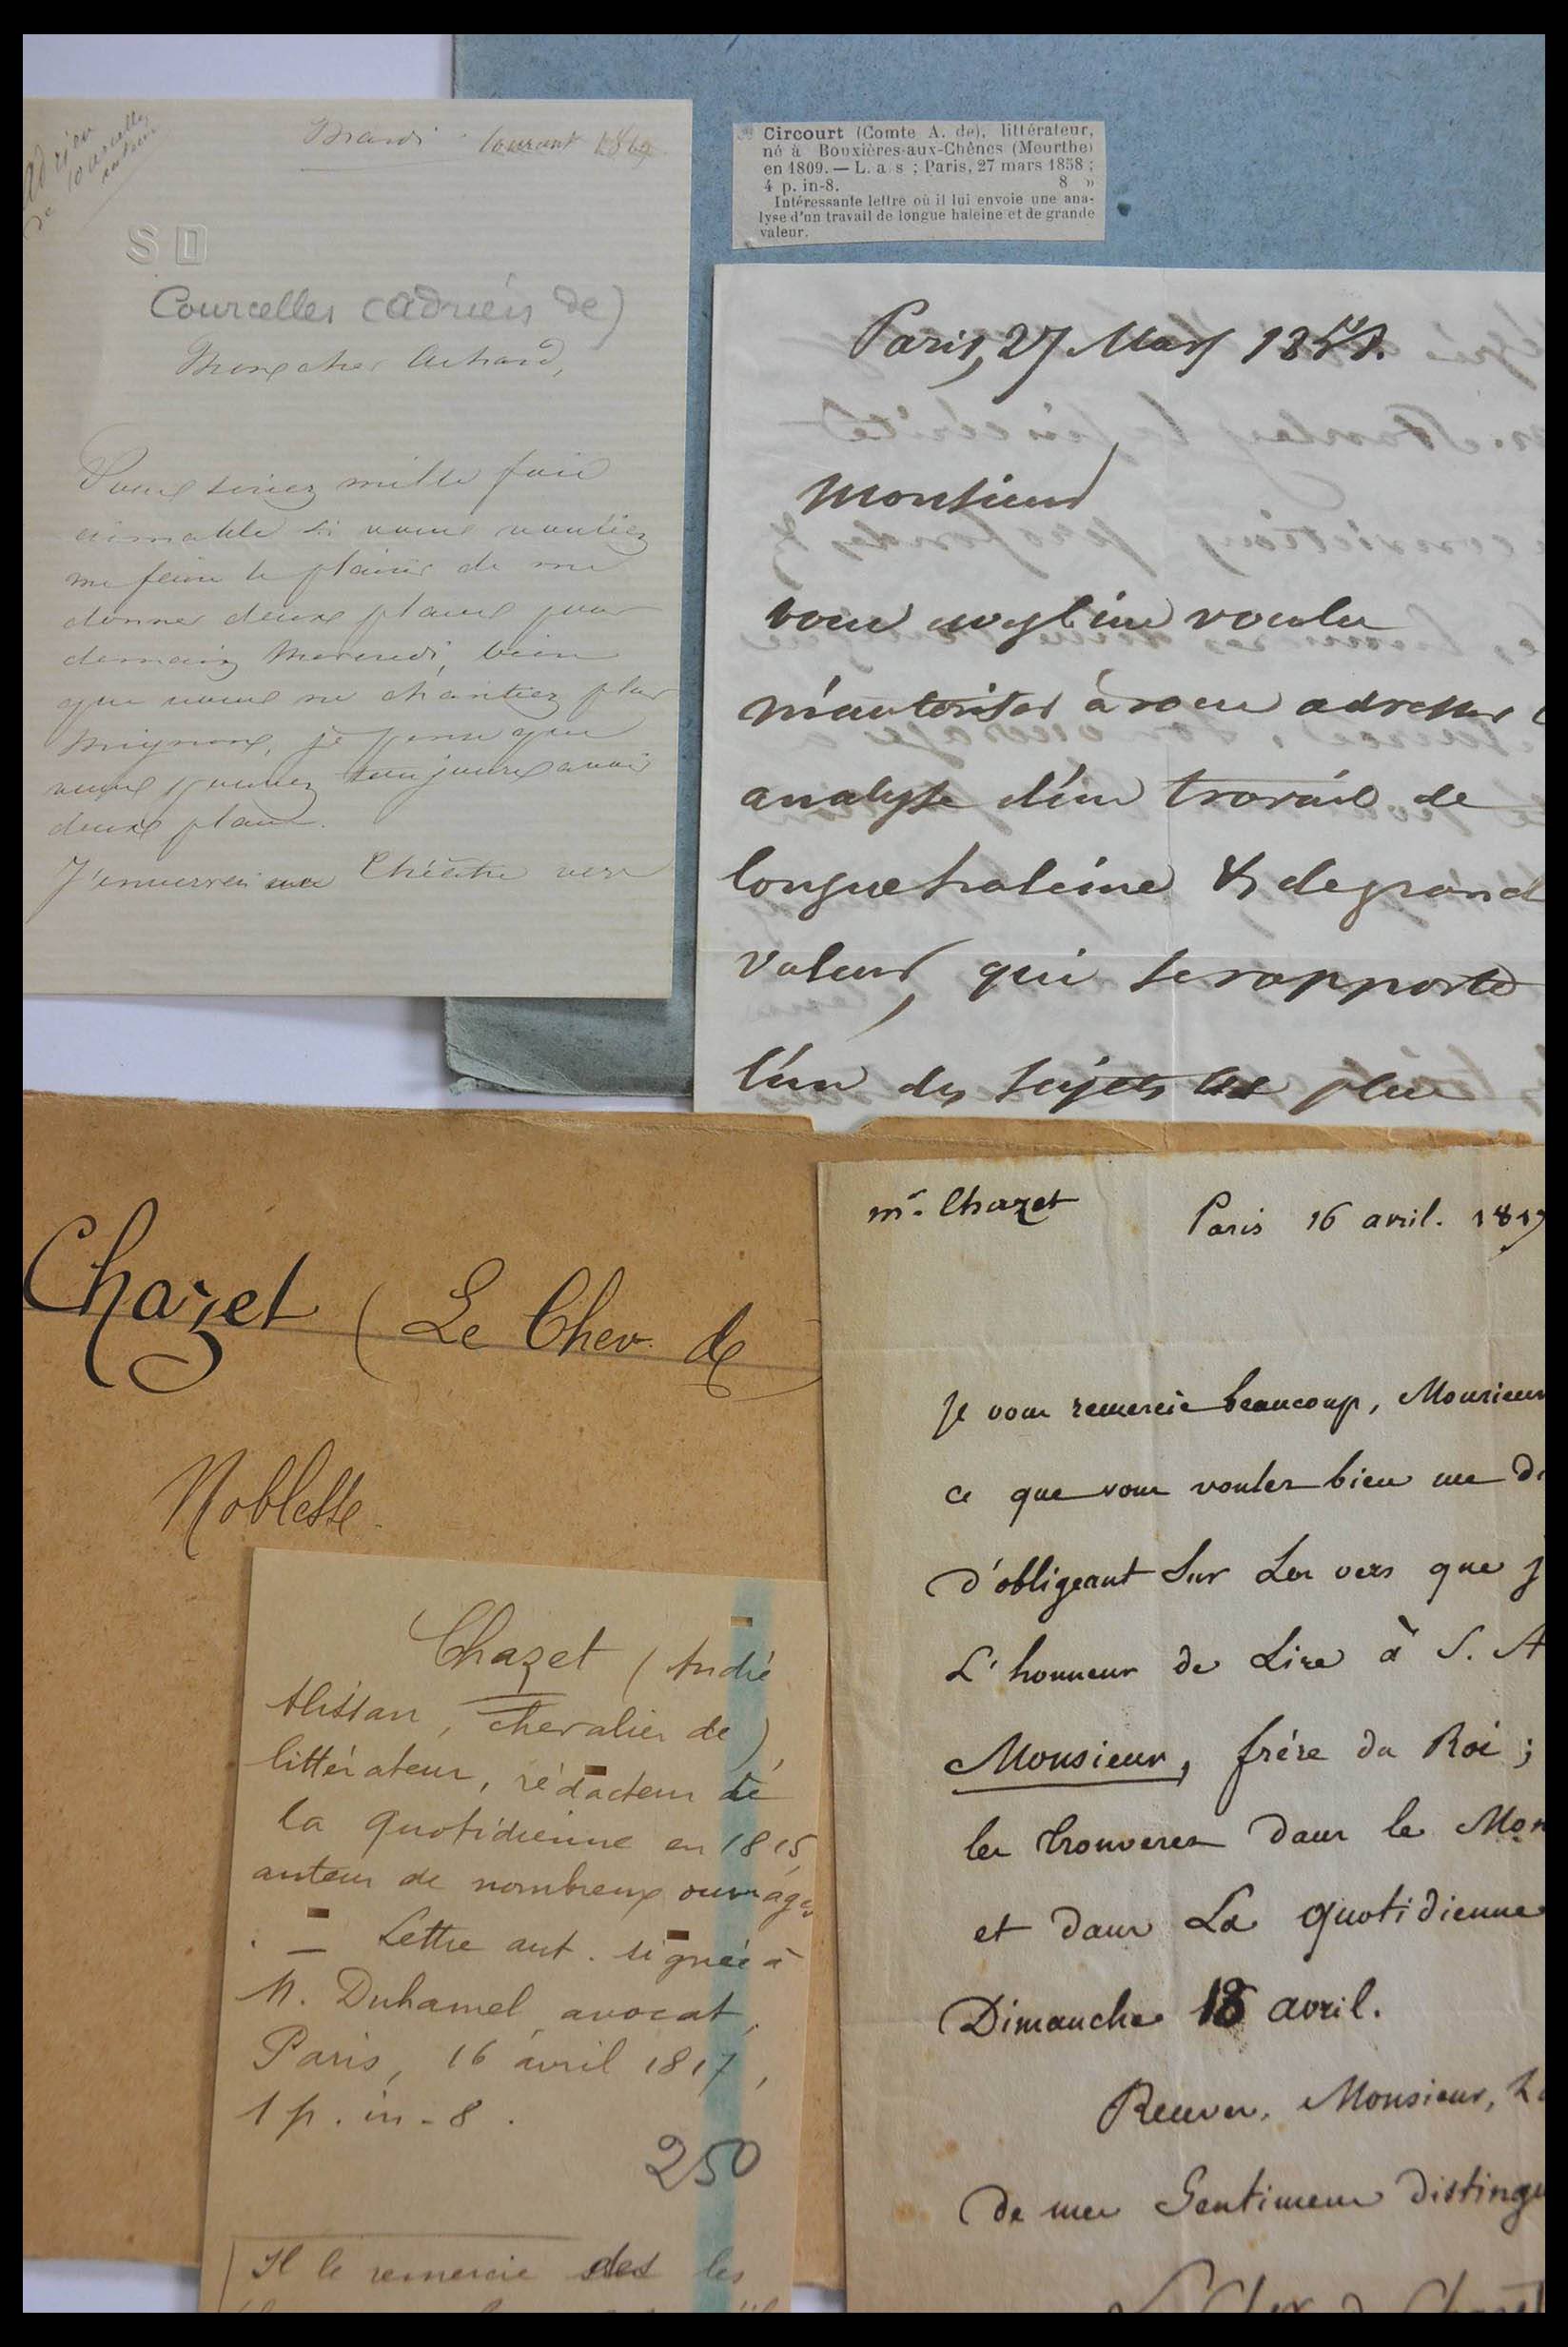 Adrien
de
Courcelles
auteur
Mardi courant 1869
SD
Courcelles (Adrien de)
Mon cher Achard,
Vous seriez mille fois
aimable si vous vouliez
me faire le plaisir de me
donner deux places pour
demain Mercredi, bien
que vous ne chantiez plus
Mignon, je pense que
vous pouvez toujours avoir
deux places.
J'enverrai au Théâtre vers
Circourt (Comte A. de), littérateur,
né à Bouxières-aux-Chênes (Meurthe)
en 1809. — L. a s ; Paris, 27 mars 1858 ;
4 p. in-8. 8 »
Intéressante lettre où il lui envoie une ana-
lyse d'un travail de longue haleine et de grande
valeur.
Paris, 27 Mars 1858.
Monsieur
vous avez bien voulu
m'autoriser à vous adresser
analyse d'un travail de
longue haleine & de grand
valeur, qui se rapporte
l'un des sujets les plus
Chazet (Le Chev. de
Noblesse.
Chazet (André
Alissan, chevalier de),
littérateur, rédacteur de
la Quotidienne en 1815,
auteur de nombreux ouvrages
. — Lettre aut. signée à
M. Duhamel, avocat,
Paris, 16 avril 1817,
1 p. in-8.
250
Il le remercie des les
mr. Chazet
Paris 16 avril. 1817
Je vous remercie beaucoup, Monsieur
ce que vous voulez bien me di
d'obligeant sur les vers que j
L'honneur de Lire à S. A
Monsieur, frère du Roi ;
les trouverez dans le Mon
et dans La quotidienne
Dimanche 18 avril.
Recevez, Monsieur, L
de mes Sentimens distingu
Le Chev de Chazet